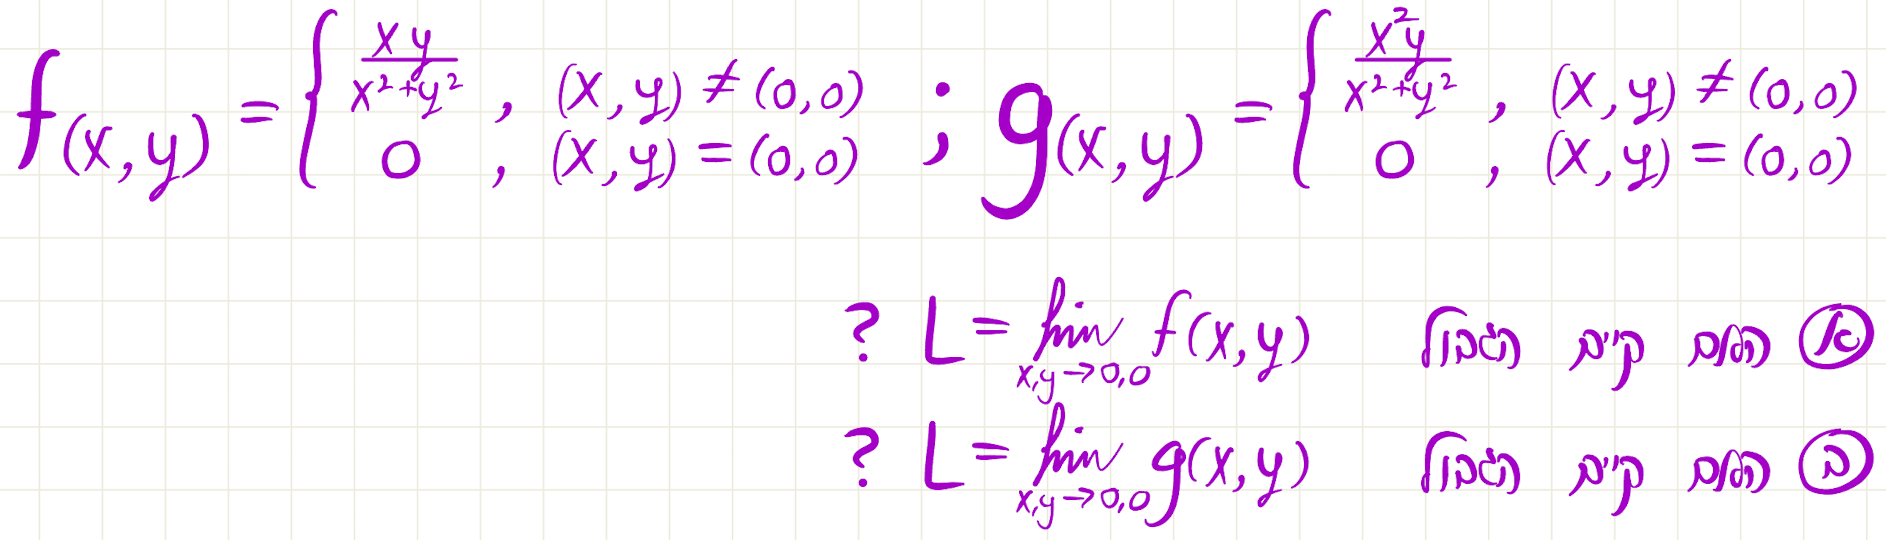 f(x,y) = { xy/(x²+y²) , (x,y) ≠ (0,0) ; 0 , (x,y) = (0,0) ; g(x,y) = { x²y/(x²+y²) , (x,y) ≠ (0,0) ; 0 , (x,y) = (0,0)
א האם קיים הגבול L = lim x,y→0,0 f(x,y) ?
ב האם קיים הגבול L = lim x,y→0,0 g(x,y) ?